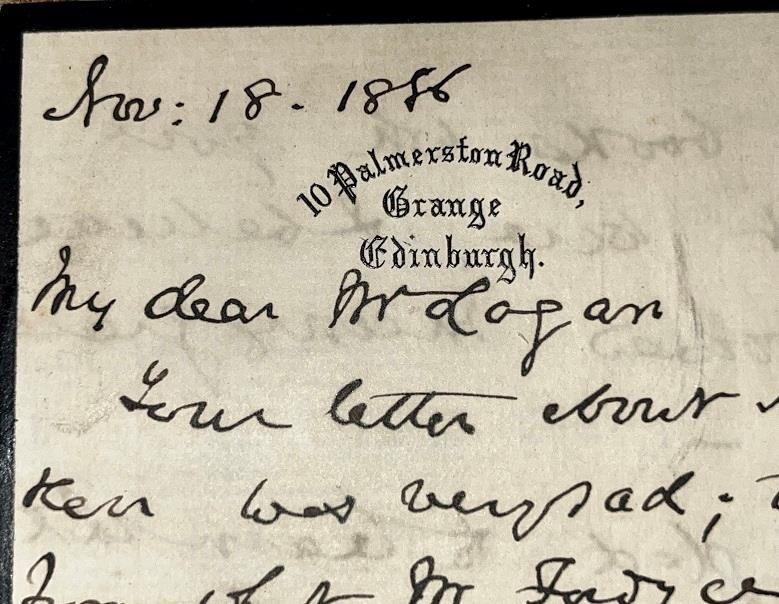 Nov: 18. 1886
10 Palmerston Road,
Grange
Edinburgh.
My dear Mr Logan
Your letter about
Kerr was very sad;
Mr Fordyce